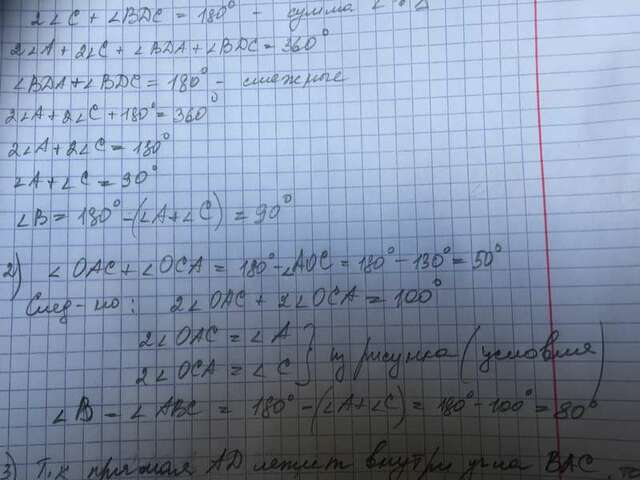 2∠C + ∠BDC = 180° - сумма ∠ Δ
2∠A + 2∠C + ∠BDA + ∠BDC = 360°
∠BDA + ∠BDC = 180° - смежные
2∠A + 2∠C + 180° = 360°
2∠A + 2∠C = 180°
∠A + ∠C = 90°
∠B = 180° - (∠A + ∠C) = 90°
2) ∠OAC + ∠OCA = 180° - ∠AOC = 180° - 130° = 50°
След-но: 2∠OAC + 2∠OCA = 100°
2∠OAC = ∠A
2∠OCA = ∠C } из рисунка (условия)
∠B - ∠ABC = 180° - (∠A + ∠C) = 180° - 100° = 80°
3) Т.к прямая AD лежит внутри угла BAC, то